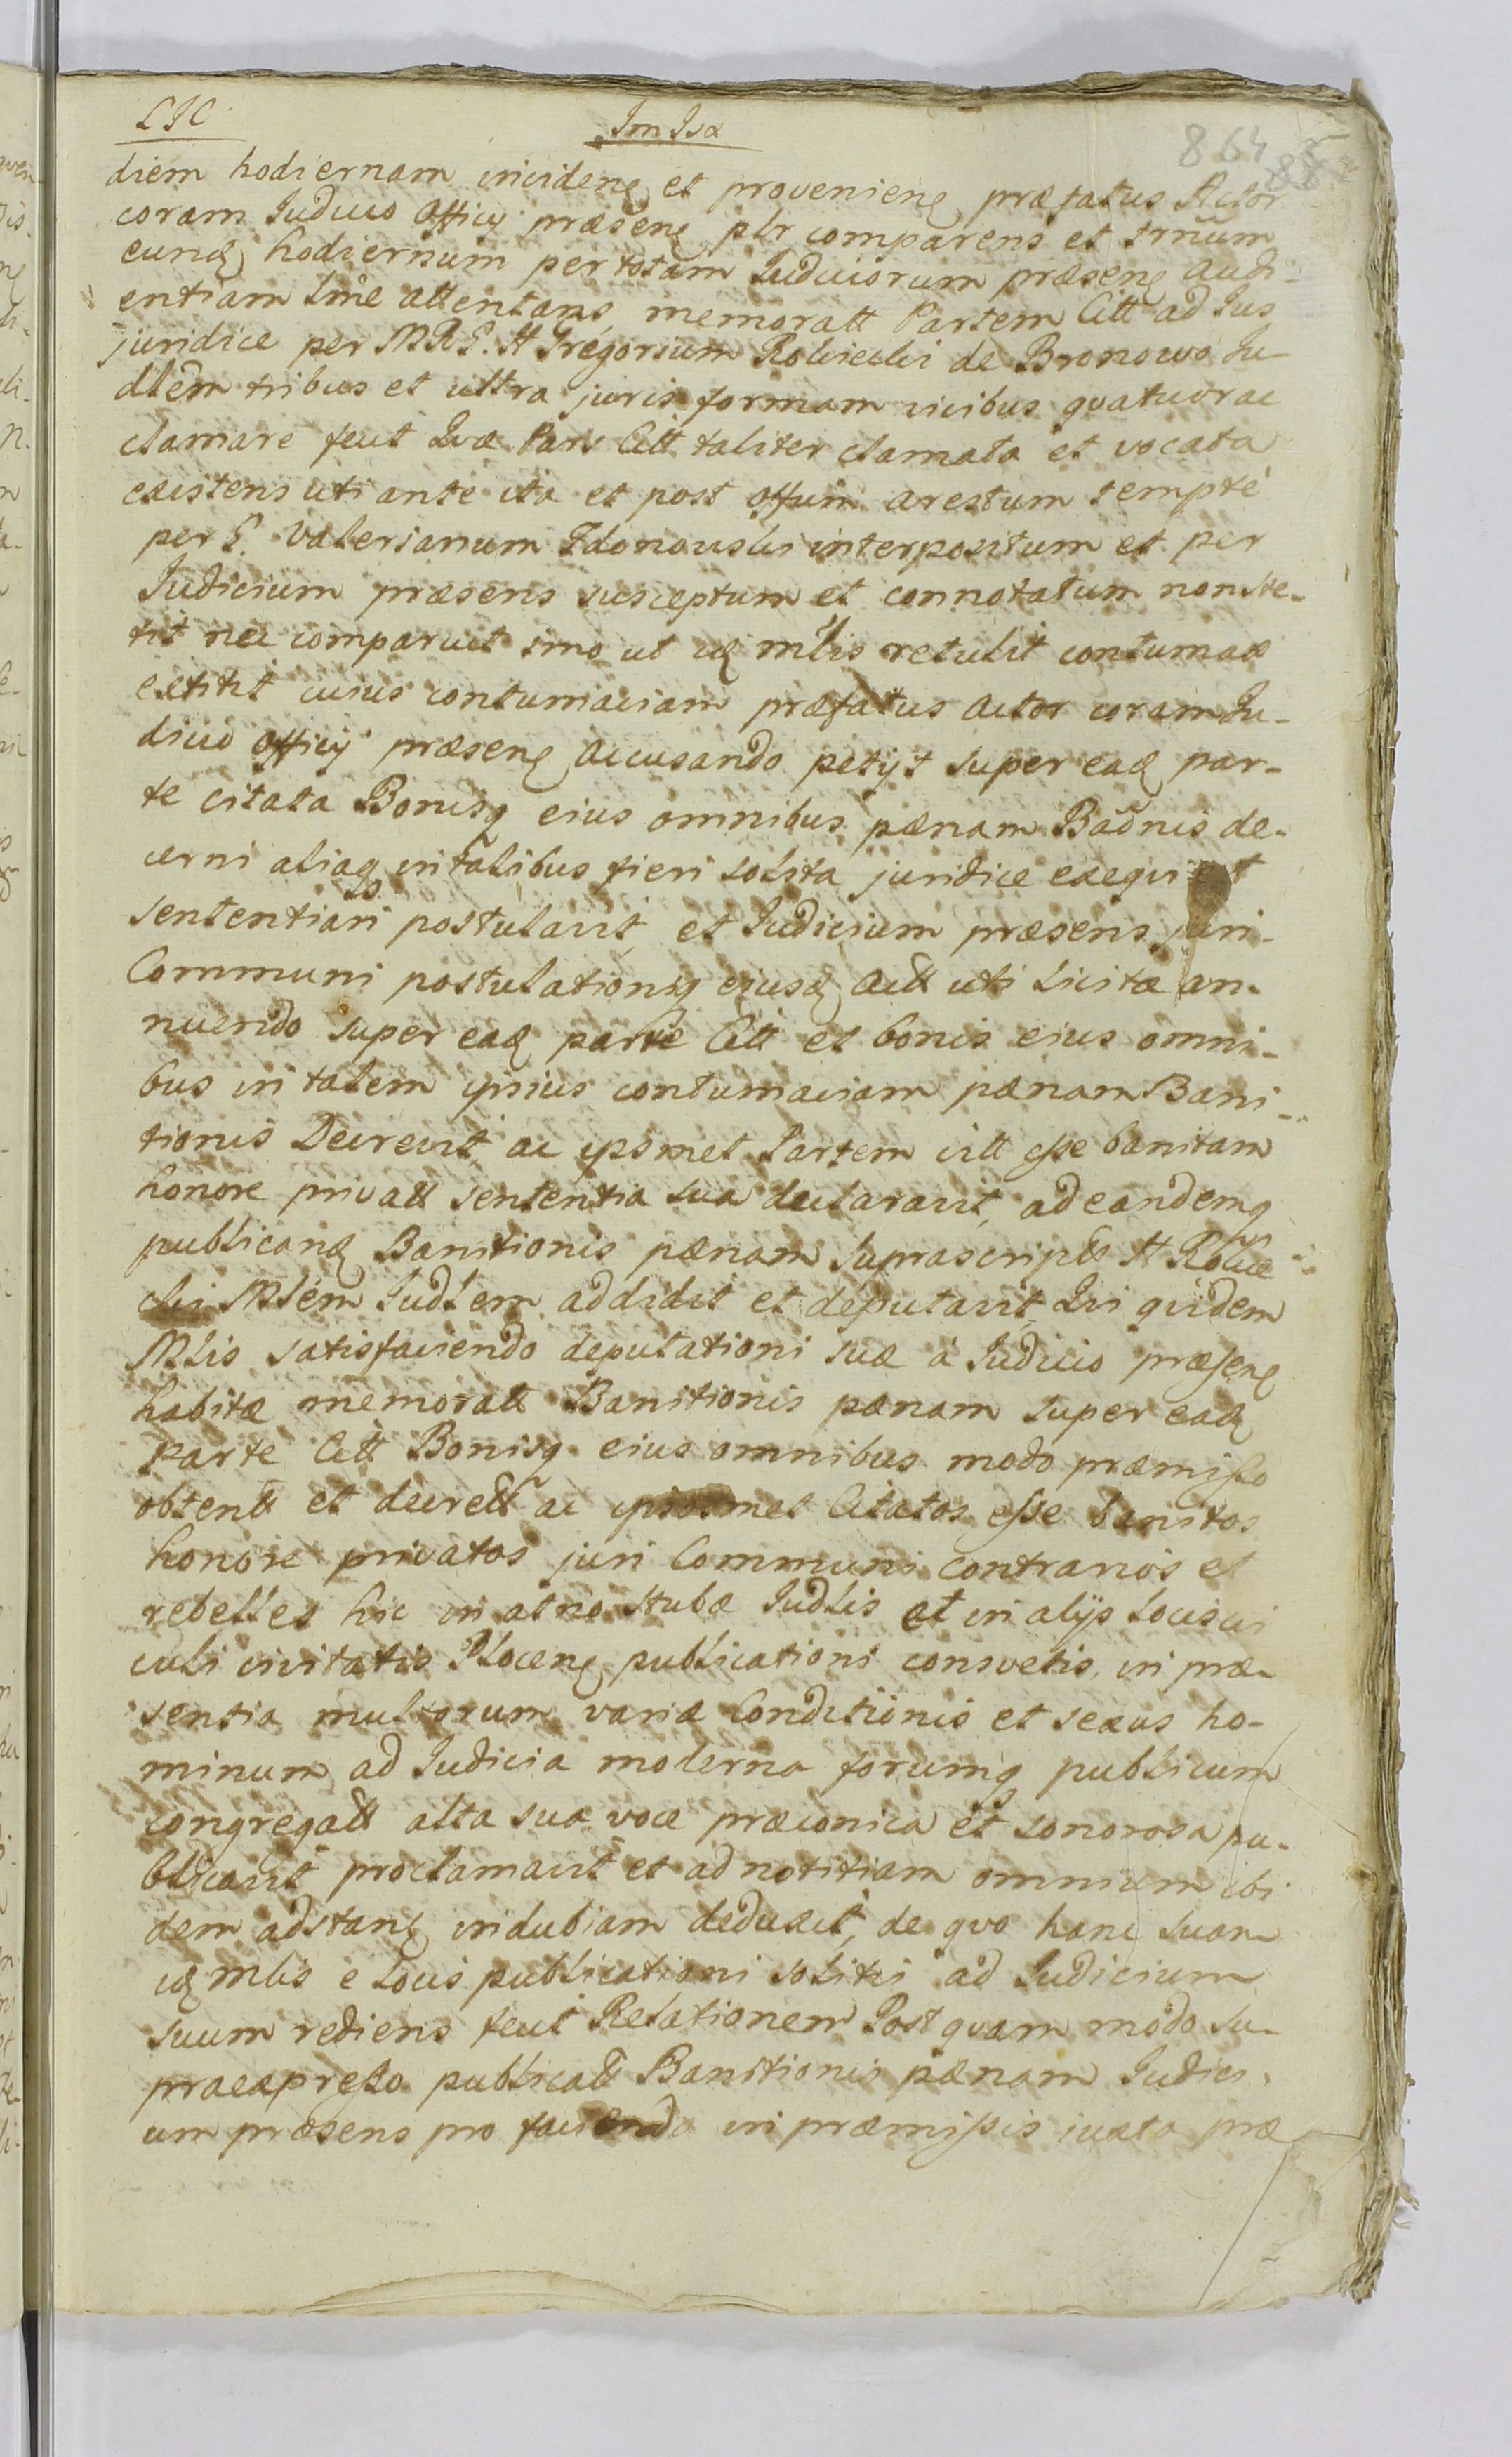 LIC Im Isa 864
diem hodiernam incidenę et provenienę præfatus Actor
coram Iudicio Officij præsenę plr comparens et trnum
eundę hodiernum per totam Iudiciorum præsenę audi-
entiam lme attentans, memoratt Partem Citt ad Jus
juridice per MRS. H Gregorium de Bronowo Ju-
dlem tribus et ultra juris formam vicibus quatuorac
clamare fecit Quæ Pars Citt taliter clamata et vocata
existens uti ante ita et post Offum arestum tempte
per S. Valerianum Zdonouski interpositum et per
Iudicium præsens susceptum et connotatum non ste-
tit nec comparuit imo ut idę mlis retulit contumax
extitit cuius contumaciam præfatus Actor coram Ju-
dicio Officij præsenę accusando petijt super eadę par-
te citata Bonisq eius omnibus pænam Baonis de-
cerni aliaq in talibus fieri solita juridice exequi et
sententiari postulavit, et Iudicium præsens juri
Communi postulationiq ejusdę Actt uti licitæ an-
nuendo super eadę parte Citt et bonis eius omni-
bus in talem ipsius contumaciam pænam Bani-
tionis Decrevit, ac ipsmet Partem citt esse banitam
honore privatt sententia sua declaravit, ad eandemq
publicandę Banitionis pænam suprascriptt H
Mlem Iudlem addidit et deputavit Qui quidem
Mlis satisfaciendo deputationi suæ à Iudicio præsenę
habitæ memoratt Banitionis pænam super eadę
parte Citt Bonisq eius omnibus modo præmisso
obtentt et decrett ac ipsosmet Citatos esse banitos
honore privatos juri Communi contrarios et
rebelles hic in atrio stubæ Iudlis et in alijs locis
culi civitatis Plocenę publicationi consvetis, in præ-
sentia multorum variæ Conditionis et sexus ho-
minum ad Iudicia moderna forumq publicum
congregatt alta sua voce præconica et sonorosa pu-
blicavit proclamavit et ad notitiam omnium ibi
dem adstanę indubiam deduxit, de quo hanc suam
idę mlis e locis publicationi solitis ad Iudicium
suum rediens fecit Relationem Postquam modo su-
praexpresso publicatt Banitionis pænam Iudici-
um præsens pro facienda in præmissis iuxta præ